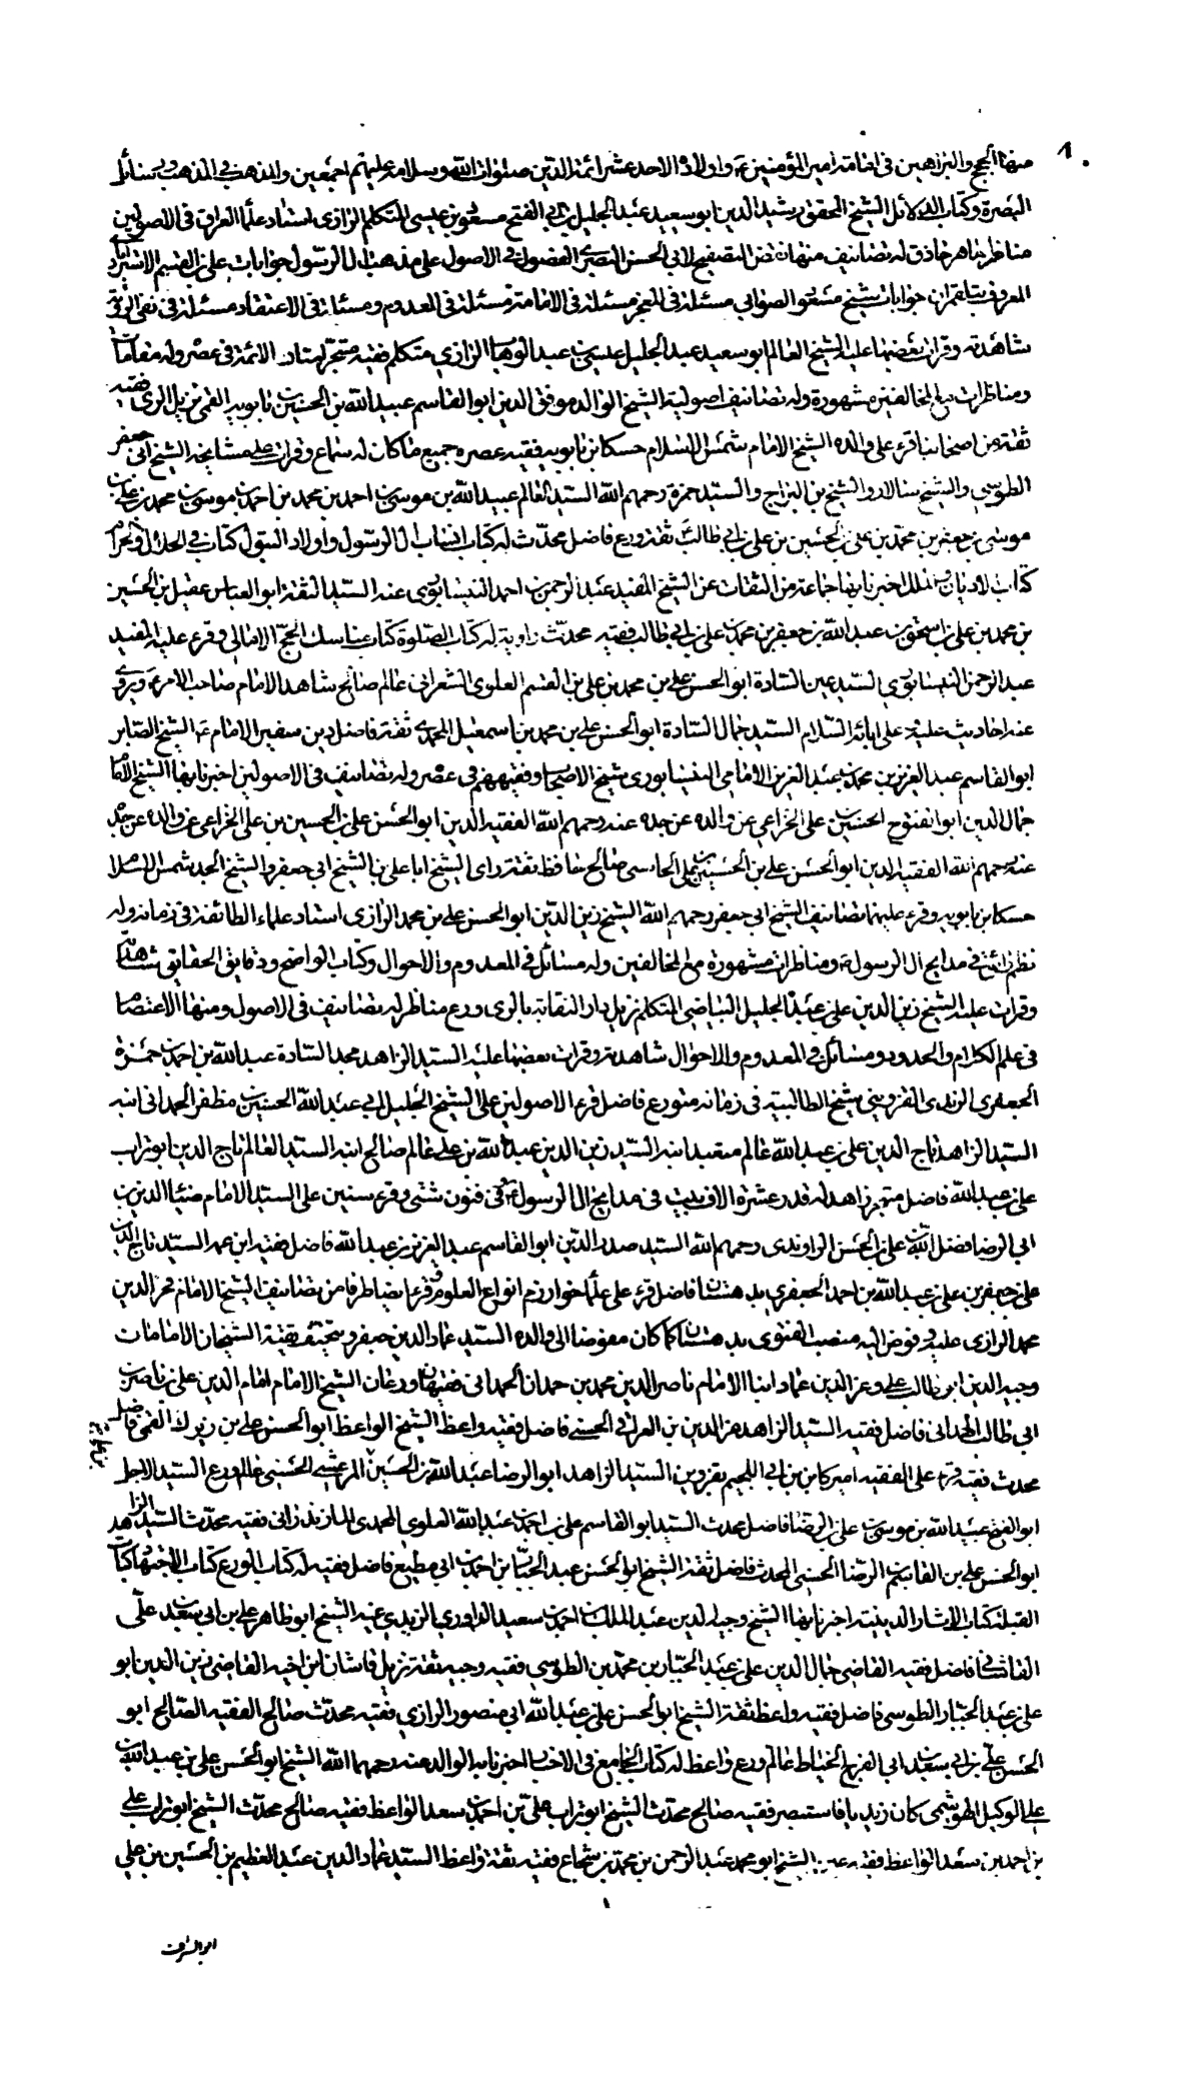 ٨
منها الحجج والبراهين في امامة امير المؤمنين ع واولاده الاحد عشر ائمة الدين صلوات الله وسلامه عليهم اجمعين والمذهب في المذهب ومسائل
البصرة وكتاب الدلائل الشيخ المحقق رشيد الدين ابو سعيد عبد الجليل بن ابي الفتح مسعود بن عيسى المتكلم الرازي استاد علماء العراق في الاصولين
مناظر ماهر حاذق له تصانيف منها نقض التصفح لابي الحسن البصري الفصول في الاصول على مذهب ال الرسول جوابات علي بن القسم الاسترابادي
المعروف ببلقمران جوابات الشيخ مسعود الصوابي مسئلة في المعجز مسئلة في الامامة مسئلة في المعدوم ومسئلة في الاعتقاد مسئلة في نفي الرؤية
شاهدته وقرات بعضها عليه الشيخ العالم ابو سعيد عبد الجليل بن عيسى بن عبد الوهاب الرازي متكلم فقيه متبحر استاد الائمة في عصره وله مقامات
ومناظرات مع المخالفين مشهورة وله تصانيف اصولية الشيخ الوالد موفق الدين ابو القاسم عبيد الله بن الحسن بن بابويه القمي نزيل الري فقيه
ثقة من اصحابنا قرء على والده الشيخ الامام شمس الاسلام حسكا بن بابويه فقيه عصره جميع ما كان له سماع وقراءة على مشايخه الشيخ ابي جعفر
الطوسي والشيخ سالار والشيخ بن البراج والسيد حمزة رحمهم الله السيد العالم عبيد الله بن موسى بن احمد بن محمد بن احمد بن موسى بن محمد بن علي بن
موسى بن جعفر بن محمد بن علي بن الحسين بن علي بن ابي طالب ثقة ورع فاضل محدث له كتاب انساب ال الرسول واولاد البتول كتاب في الحلال والحرام
كتاب الاديان والملل اخبرنا بها جماعة من الثقات عن الشيخ المفيد عبد الرحمن بن احمد النيسابوري عنه السيد الثقة ابو العباس عقيل بن الحسين
بن محمد بن علي بن اسحق بن عبد الله بن جعفر بن محمد بن علي بن ابي طالب فقيه محدث راوية له كتاب الصلوة كتاب مناسك الحج الامالي وقرء عليه المفيد
عبد الرحمن النيسابوري السيد عين السادة ابو الحسن علي بن محمد بن علي بن القسم العلوي الشعراني عالم صالح شاهد الامام صاحب الامر ع ويروي
عنه احاديث عليه وعلى ابائه السلام السيد جمال السادة ابو الحسن علي بن محمد بن اسمعيل المحمدي ثقة فاضل دين سفير الامام ع الشيخ الصابر
ابو القاسم عبد العزيز بن محمد بن عبد العزيز الامامي النيسابوري شيخ الاصحاب وفقيههم في عصره وله تصانيف في الاصولين اخبرنا بها الشيخ الامام
جمال الدين ابو الفتوح الحسين بن علي الخزاعي عن والده عن جده عنه رحمهم الله الفقيه الدين ابو الحسن علي بن الحسين بن علي الخزاعي عن والده عن جده
عنه رحمهم الله الفقيه الدين ابو الحسن علي بن الحسين بن علي الحاسي صالح حافظ ثقة راى الشيخ ابا علي بن الشيخ ابي جعفر والشيخ الجد شمس الاسلام
حسكا بن بابويه وقرء عليهما تصانيف الشيخ ابي جعفر رحمهم الله الشيخ زين الدين ابو الحسن علي بن محمد الرازي استاد علماء الطائفة في زمانه وله
نظم رائق في مدايح ال الرسول ع ومناظرات مشهورة مع المخالفين وله مسائل في المعدوم والاحوال وكتاب الواضح ودقايق الحقايق شاهدته
وقرات عليه الشيخ زين الدين علي بن عبد الجليل البياضي المتكلم نزيل دار النقابة بالري ورع مناظر له تصانيف في الاصول ومنها الاعتصام
في علم الكلام والحدود ومسائل في المعدوم والاحوال شاهدته وقرات بعضها عليه السيد الزاهد مجد السادة عبد الله بن احمد بن حمزة
الجعفري الزينبي القزويني شيخ الطالبية في زمانه متورع فاضل قرء الاصولين على الشيخ الجليل ابي عبد الله الحسين بن مظفر الحمداني ابنه
السيد الزاهد تاج الدين علي بن عبد الله عالم متعبد ابنه السيد زين الدين عبد الله بن علي عالم صالح ابنه السيد العالم تاج الدين ابو تراب
علي بن عبد الله فاضل متبحر زاهد له قدر عشرة الاف بيت في مدايح ال الرسول ع في فنون شتى وقرء سنين على السيد الامام ضياء الدين بن
ابي الرضا فضل الله بن علي بن الحسن الراوندي رحمهم الله السيد صدر الدين ابو القاسم عبد العزيز بن عبد الله فاضل فقيه ابن عمه السيد تاج الدين
علي بن جعفر بن علي بن عبد الله بن احمد الجعفري بدهستان فاضل قرء على علماء خوارزم انواع العلوم وقرء ايضا طرفا من تصانيف الشيخ الامام فخر الدين
محمد الرازي عليه وفوض اليه منصب الفتوى بدهستان كما كان مفوضا الى والده السيد عماد الدين جعفر ويتحنف تقية الشيخان الامامان
وجيه الدين ابو طالب علي وعز الدين عماد ابنا الامام ناصر الدين محمد بن حمدان الحمداني فقيهان ورعان الشيخ الامام امام الدين علي بن ناصر بن
ابي طالب الحمداني فاضل فقيه السيد الزاهد عز الدين بن العراقي الحسني فاضل فقيه واعظ الشيخ الواعظ ابو الحسن علي بن زيرك القمي فاضل
محدث فقيه قرء على الفقيه اميركا بن ابي اللجيم بقزوين السيد الزاهد ابو الرضا عبد الله بن الحسين المرعشي الحسيني عالم ورع السيد الاجل
ابو الفتح عبيد الله بن موسى بن علي الرضا فاضل محدث السيد ابو القاسم علي بن احمد بن عبد الله العلوي المحمدي المازندراني فقيه محدث السيد الزاهد
ابو الحسن علي بن القاسم بن الرضا الحسني المحدث فاضل ثقة الشيخ ابو الحسن عبد الجبار بن احمد بن ابي مطيع فاضل فقيه له كتاب الورع كتاب الاجتهاد كتاب
القبلة كتاب الاثار الدينية اخبرنا بها الشيخ وجيه الدين عبد الملك بن احمد بن سعيد الداوري الزيدي عنه الشيخ ابو طاهر علي بن ابي سعد بن علي
القاشاني فاضل فقيه القاضي جمال الدين علي بن عبد الجبار بن محمد بن الطوسي فقيه وجيه ثقة نزيل قاشان ابن اخيه القاضي زين الدين ابو
علي بن عبد الجبار الطوسي فاضل فقيه واعظ ثقة الشيخ ابو الحسن علي بن عبد الله ابي منصور الرازي فقيه محدث صالح الفقيه الصالح ابو
الحسن علي بن ابي سعد بن ابي الفرج الخياط عالم ورع واعظ له كتاب الجامع في الاخبار اخبرنا به الوالد عنه رحمهما الله الشيخ ابو الحسن علي بن عبد الله بن
علي الوكيل الهوشمي كان زيديا فاستبصر فقيه صالح محدث الشيخ ابو تراب علي بن احمد بن سعد الواعظ فقيه صالح محدث الشيخ ابو تراب علي
بن احمد بن سعد الواعظ فقيه الشيخ ابو محمد عبد الرحمن بن محمد بن شجاع فقيه ثقة واعظ السيد عماد الدين عبد العظيم بن الحسين بن علي
ابو الشرف